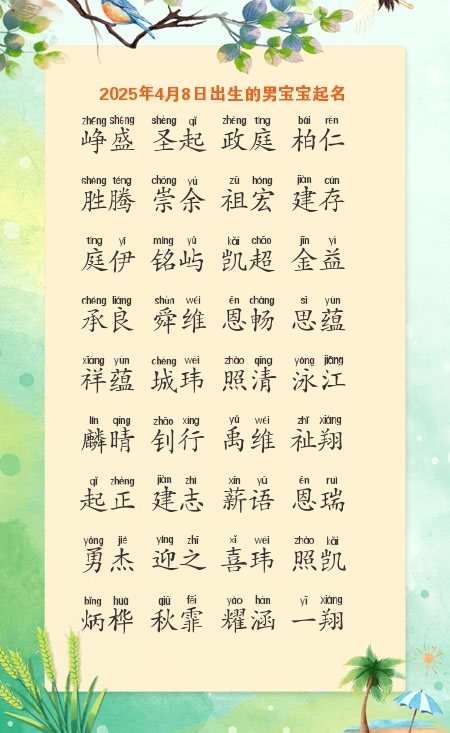 2025年4月8日出生的男宝宝起名
zhēng shèng shèng qǐ zhèng tíng bǎi rén
峥盛 圣起 政庭 柏仁
shèng téng chóng yú zǔ hóng jiàn cún
胜腾 崇余 祖宏 建存
tíng yī míng yǔ kǎi chāo jīn yì
庭伊 铭屿 凯超 金益
chéng liáng shùn wéi ēn chàng sī yùn
承良 舜维 恩畅 思蕴
xiáng yùn chéng wěi zhào qīng yǒng jiāng
祥蕴 城玮 照清 泳江
lín qíng zhāo xíng yǔ wéi zhǐ xiáng
麟晴 钊行 禹维 祉翔
qǐ zhèng jiàn zhì xīn yǔ ēn ruì
起正 建志 薪语 恩瑞
yǒng jié yíng zhī xǐ wěi zhào kǎi
勇杰 迎之 喜玮 照凯
bǐng huà qiū fēi yào hán yī xiáng
炳桦 秋霏 耀涵 一翔